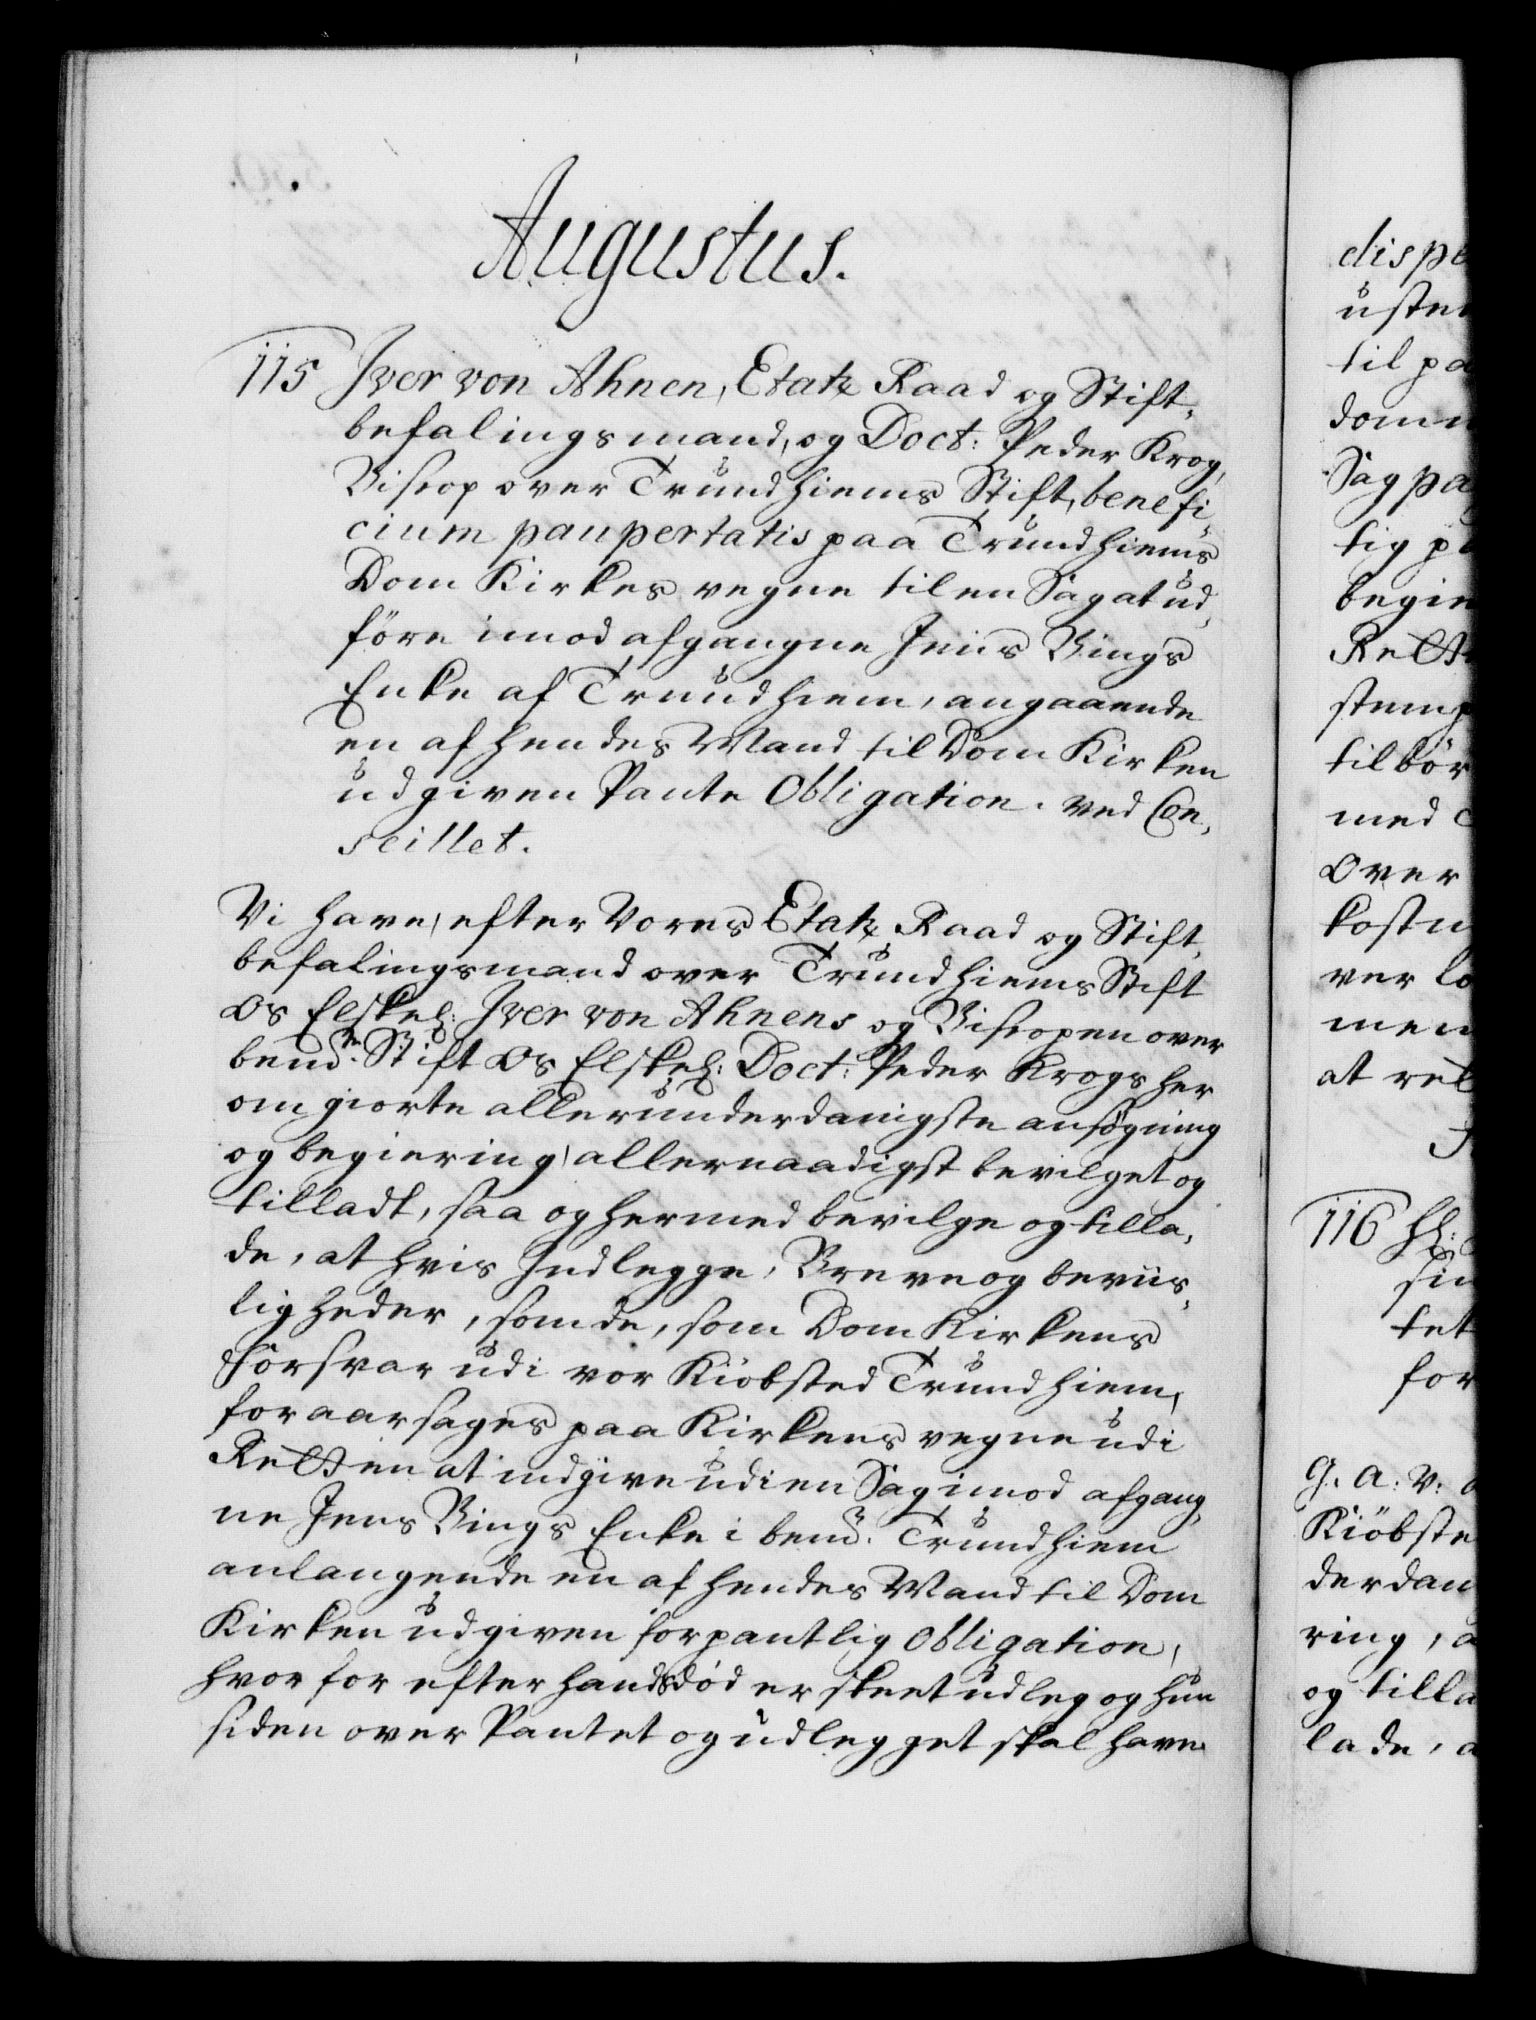 Augustus.
115 Iver von Ahnen, Etatz Raad og Stift,
befalingsmand, og Doct: Peder Krog,
Biscop over Trundhiems Stift, benefi,
cium paupertatis paa Trundhiems
Dom Kirkes vegne til en Sag at ud,
före imod afgangne Jens Bings
Enke af Trundhiem, angaaende
en af hendes Mand til Dom Kirken
udgiven Pante Obligation. Ved Con,
seillet.
Vi have, efter Vores Etatz Raad og Stift,
befalingsmand over Trundhiems Stift
Os Elskel: Iver von Ahnens og Biscopen over
bemte. Stift Os Elskel: Doct: Peder Krogs her
om giorte allerunderdanigste ansögning
og begiering, allernaadigst bevilget og
tilladt, saa og hermed bevilge og tilla,
de, at hvis Indlegge, Breve og beviis,
ligheder, som de, som Dom Kirkens
Forsvar udi vor Kiöbsted Trundhiem,
foraarsages paa Kirkens vegne udi
Retten at indgive udi en Sag imod afgang,
ne Jens Bings Enke i bemte. Trundhiem
anlangende en af hendes Mand til Dom
Kirken udgiven forpantlig Obligation,
hvor for efter hands död er skeet udleg og hun
siden over Pantet og udlegget skal have
dispe
usten
til pa
domm
Sag pa
tig p
begie
Rette
stemp
tilbör
med
Over
kostn
ver lo
men
at re
116 Hl:
sin
tet
for
G. A: V:
Kiöbste
derdan
ring, a
og tilla
lade, a